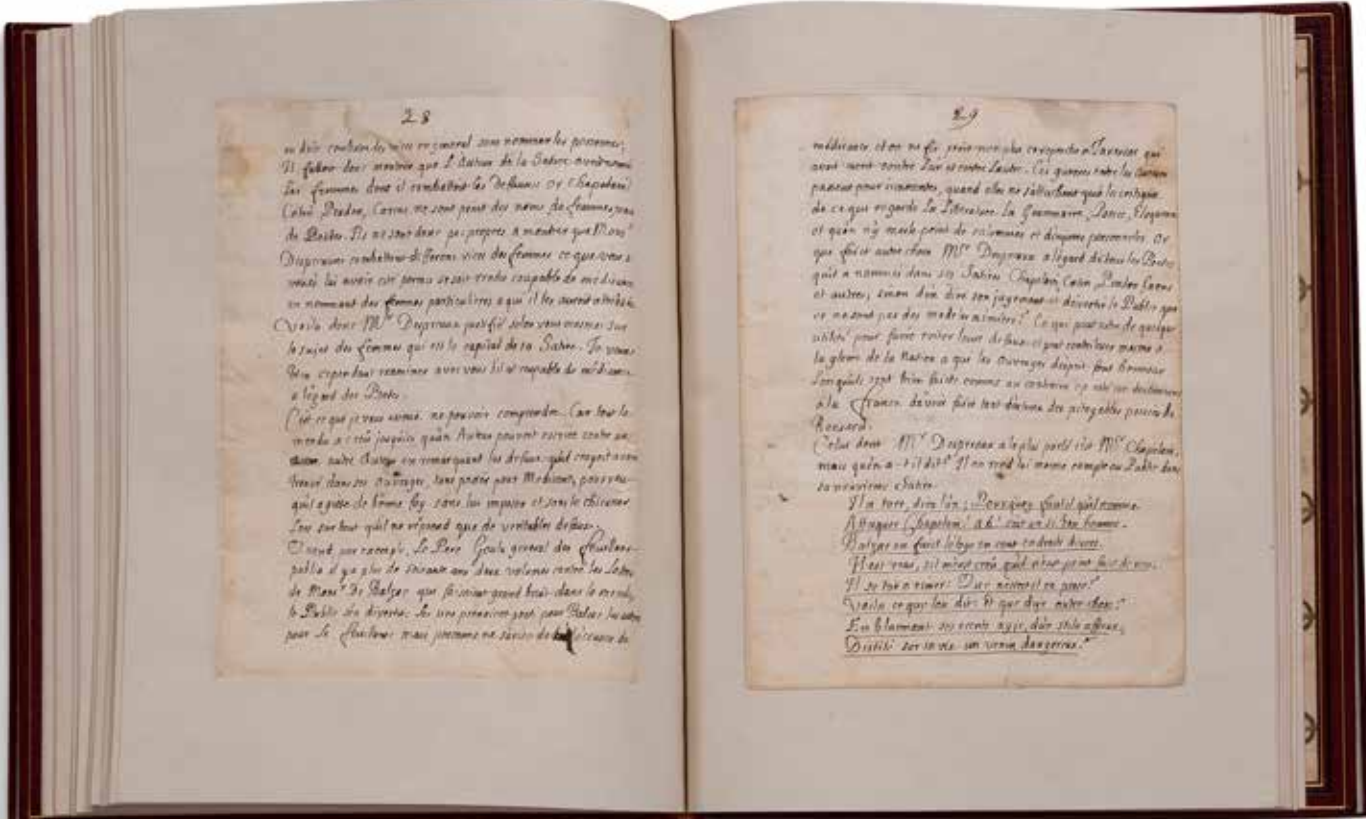 28
en doit combattre les vices en general sans nommer les personnes;
Il falloit donc montrer que L'Auteur de la Satire avoit nommé
les femmes dont il combattoit les deffauts. Or Chapelain,
Cotin, Pradon, Coras ne sont point des noms de femmes, mais
de Poetes. Ils ne sont donc pas propres a montrer que Monsr
Despreaux combattant differens vices des femmes ce que vous
venés lui avoir été permis se soit rendu coupable de médisance
en nommant des femmes particulieres a qui il les auroit attribués.
Voila donc Mr Despreaux justifié selon vous mesmes sur
le sujet des femmes qui est le capital de sa Satire. Je veux
bien cependant examiner avec vous s'il est coupable de médisance
a l'égard des Poetes.
C'est ce que je vous avoüe ne pouvoir comprendre. Car tout le
monde a creu jusqu'icy qu'un Auteur pouvoit escrire contre un
autre Auteur en remarquant les defauts qu'il croyoit avoir
trouvé dans ses ouvrages, sans passer pour Medisant, pourveu
qu'il agisse de bonne foy sans lui imposer et sans le chicaner
Lors surtout qu'il ne reprend que de veritables defauts.
Quand par exemple, Le Pere Goulu general des feuillans
publia il y a plus de soixante ans deux volumes contre les Lettres
de Monsr De Balzac qui faisoient grand bruit dans le monde,
le Public s'en divertit. Les uns prenoient parti pour Balzac, les autres
pour Le feuillant mais personne ne s'avisa de l'accuser de
29
médisance et on ne fit point non plus ce reproche a Javersac qui
avoit escrit contre l'un et contre l'autre. Les guerres entre les Auteurs
passent pour innocentes, quand elles ne s'attachent qu'à la critique
de ce qui regarde la Litterature, la Grammaire, Poesie, Eloquence
et qu'on n'y mesle point de calomnies et d'injures personnelles. Or
que fait autre chose Mr Despreaux a légard de tous les Poetes
qu'il a nommés dans ses Satires Chapelain, Cotin, Pradon, Coras
et autres; sinon d'en dire son jugement et d'avertir le Public que
ce ne sont pas des modeles a imiter? Ce qui peut estre de quelque
utilité pour faire eviter leurs defauts et peut contribuer mesme a
la gloire de la Nation a qui les Ouvrages d'esprit font honneur
Lorsqu'ils sont bien faits comme au contraire ça esté un deshonneur
à la France d'avoir fait tant d'estime des pitoyables poesies de
Ronsard.
Celui dont Mr Despreaux a le plus parlé c'est Mr Chapelain,
mais qu'en a-t-il dit? Il en rend lui mesme compte au Public dans
sa neuvieme Satire.
Il a tort, dira l'un; Pourquoy faut il qu'il nomme
Attaquer Chapelain! ah! c'est un si bon homme.
Balzac en fait l'éloge en cent endroits divers.
Il est vrai, s'il m'eust creu, qu'il n'eust point fait de vers.
Il se tue a rimer: Que n'escrit il en prose?
Voila ce que l'on dit. Et que dis-je autre chose?
En blasmant ses ecrits, ay-je, d'un stile affreux,
Distilé sur sa vie un venin dangereux?